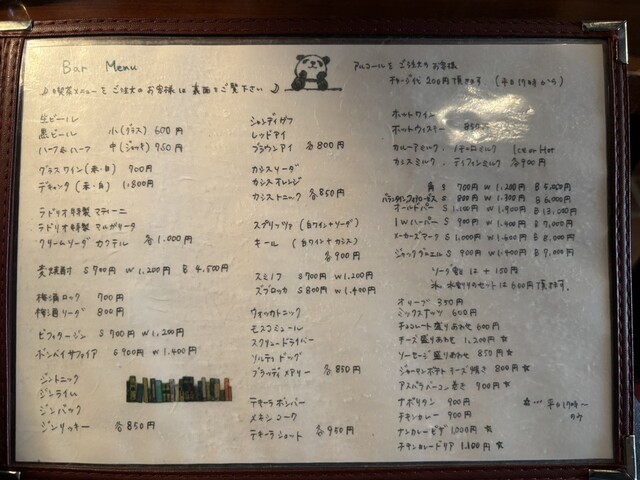 Bar Menu
喫茶メニューをご注文のお客様は裏面をご覧下さい♪
生ビール
黒ビール 小(グラス) 600円
ハーフ&ハーフ 中(ジョッキ) 950円
グラスワイン(赤・白) 700円
デキャンタ(赤・白) 1,800円
ラドリオ特製 マティーニ
ラドリオ特製 マルガリータ
クリームソーダ カクテル 各1,000円
麦焼酎 S 700円 W 1,200円 B 4,500円
梅酒ロック 700円
梅酒ソーダ 800円
ビフィータージン S 700円 W 1,200円
ボンベイサファイア S 900円 W 1,400円
ジントニック
ジンライム
ジンバック
ジンリッキー 各850円
シャンディガフ
レッドアイ
ブラウンアイ 各800円
カシスソーダ
カシスオレンジ
カシストニック 各850円
スプリッツァ(白ワイン+ソーダ)
キール (白ワイン+カシス)
各900円
スミノフ S 700円 W 1,200円
ズブロッカ S 800円 W 1,400円
ウォッカトニック
モスコミュール
スクリュードライバー
ソルティドッグ
ブラッディメアリー 各850円
テキーラボンバー
メキシコーク
テキーラショット 各950円
アルコールをご注文のお客様
チャージ代 200円頂きます (平日17時から)
ホットワイン
ホットウィスキー 850円
カルーアミルク、イチゴミルク Ice or Hot
カシスミルク、ティフィンミルク 各900円
角 S 700円 W 1,200円 B 5,000円
バランタインファイネスト S 800円 W 1,300円 B 6,000円
オールドパー S 1,100円 W 1,900円 B 13,000円
I.W.ハーパー S 900円 W 1,400円 B 7,000円
メーカーズマーク S 1,000円 W 1,600円 B 8,000円
ジャックダニエル S 900円 W 1,400円 B 7,000円
ソーダ割は +150円
氷、水割りのセットは600円頂きます。
オリーブ 350円
ミックスナッツ 600円
チョコレート盛りあわせ 600円
チーズ盛りあわせ 1,200円 ☆
ソーセージ盛りあわせ 850円 ☆
ジャーマンポテトチーズ焼き 800円 ☆
アスパラベーコン巻き 900円 ☆
ナポリタン 900円 ☆…平日17時〜
チキンカレー 900円
ナンカレーピザ 1,000円 ☆
チキンカレードリア 1,100円 ☆